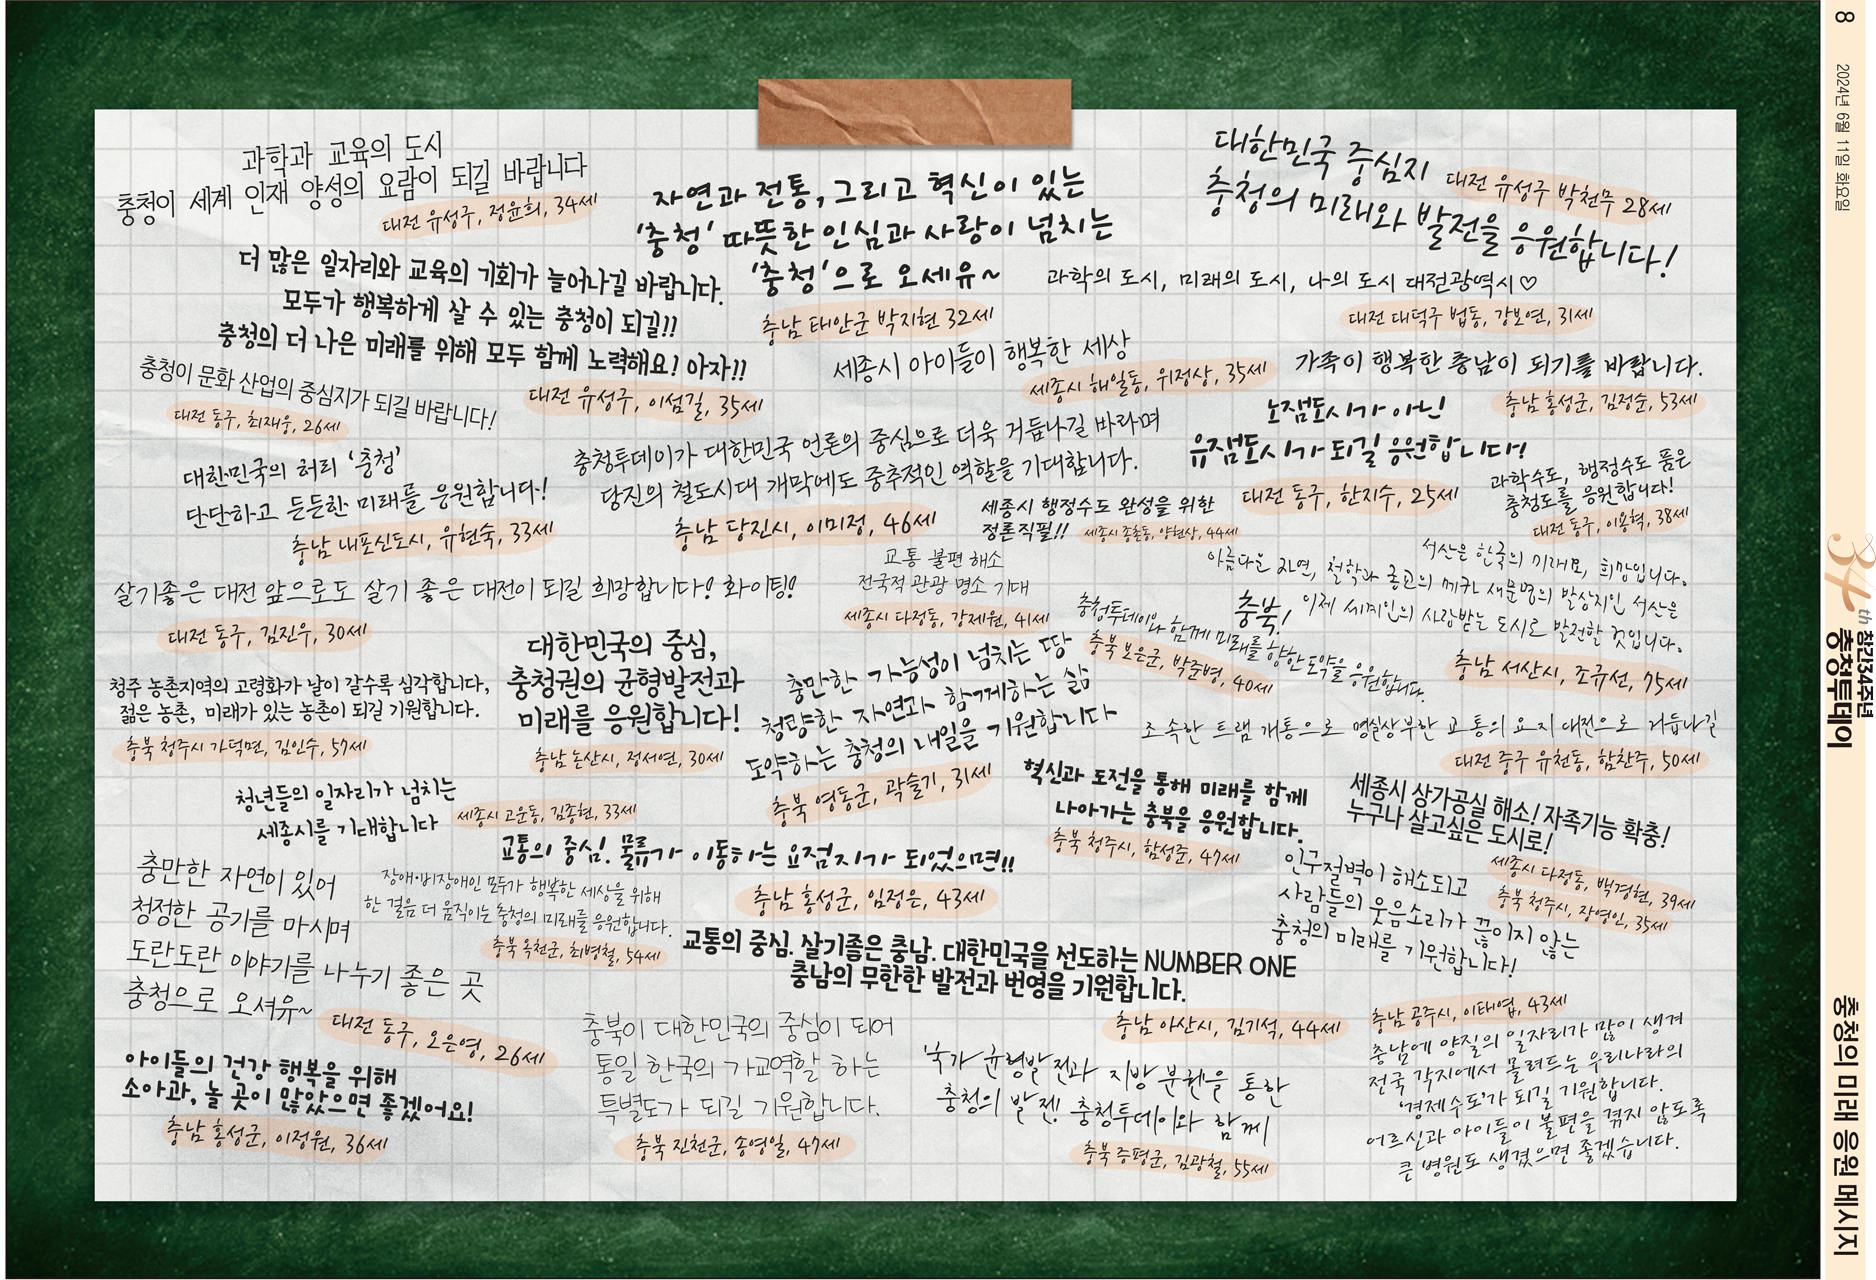 과학과 교육의 도시
충청이 세계 인재 양성의 요람이 되길 바랍니다
대전 유성구, 정윤희, 34세
자연과 전통, 그리고 혁신이 있는
'충청' 따뜻한 인심과 사랑이 넘치는
'충청'으로 오세유~
충남 태안군 박지현 32세
대한민국 중심지
충청의 미래와 발전을 응원합니다!
대전 유성구 박천무 28세
더 많은 일자리와 교육의 기회가 늘어나길 바랍니다.
모두가 행복하게 살 수 있는 충청이 되길!!
충청의 더 나은 미래를 위해 모두 함께 노력해요! 아자!!
대전 유성구, 이섬길, 35세
과학의 도시, 미래의 도시, 나의 도시 대전광역시♡
대전 대덕구 법동, 강보연, 31세
세종시 아이들이 행복한 세상
세종시 해밀동, 위정상, 35세
가족이 행복한 충남이 되기를 바랍니다.
충남 홍성군, 김정순, 53세
충청이 문화 산업의 중심지가 되길 바랍니다!
대전 동구, 최재웅, 26세
노잼도시가 아닌
유잼도시가 되길 응원합니다!
대전 동구, 한지수, 25세
대한민국의 허리 '충청'
단단하고 든든한 미래를 응원합니다!
충남 내포신도시, 유현숙, 33세
충청투데이가 대한민국 언론의 중심으로 더욱 거듭나길 바라며
당진의 철도시대 개막에도 중추적인 역할을 기대합니다.
충남 당진시, 이미정, 46세
세종시 행정수도 완성을 위한
정론직필!!
세종시 종촌동, 양현상, 44세
과학수도, 행정수도 품은
충청도를 응원합니다!
대전 동구, 이용혁, 38세
교통 불편 해소
전국적 관광 명소 기대
세종시 다정동, 강제원, 41세
서산은 한국의 미래요, 희망입니다.
아름다운 자연, 철학과 종교의 메카 새문명의 발상지인 서산은
이제 세계인의 사랑받는 도시로 발전할 것입니다.
충남 서산시, 조규선, 75세
살기좋은 대전 앞으로도 살기 좋은 대전이 되길 희망합니다! 화이팅!
대전 동구, 김진우, 30세
충북!
충청투데이와 함께 미래를 향한 도약을 응원합니다.
충북 보은군, 박준병, 40세
대한민국의 중심,
충청권의 균형발전과
미래를 응원합니다!
충남 논산시, 정서연, 30세
충만한 가능성이 넘치는 땅
청량한 자연과 함께하는 삶
도약하는 충청의 내일을 기원합니다
충북 영동군, 곽슬기, 31세
청주 농촌지역의 고령화가 날이 갈수록 심각합니다,
젊은 농촌, 미래가 있는 농촌이 되길 기원합니다.
충북 청주시 가덕면, 김인수, 57세
조속한 트램 개통으로 명실상부한 교통의 요지 대전으로 거듭나길
대전 중구 유천동, 함찬주, 50세
혁신과 도전을 통해 미래를 함께
나아가는 충북을 응원합니다.
충북 청주시, 함성준, 47세
세종시 상가공실 해소! 자족기능 확충!
누구나 살고싶은 도시로!
세종시 다정동, 백경현, 39세
청년들의 일자리가 넘치는
세종시를 기대합니다
세종시 고운동, 김종현, 33세
교통의 중심! 물류가 이동하는 요점지가 되었으면!!
충남 홍성군, 임정은, 43세
인구절벽이 해소되고
사람들의 웃음소리가 끊이지 않는
충청의 미래를 기원합니다!
충북 청주시, 장영인, 35세
충만한 자연이 있어
청정한 공기를 마시며
도란도란 이야기를 나누기 좋은 곳
충청으로 오셔유~
대전 동구, 오은영, 26세
장애·비장애인 모두가 행복한 세상을 위해
한 걸음 더 움직이는 충청의 미래를 응원합니다.
충북 옥천군, 최병철, 54세
교통의 중심. 살기좋은 충남. 대한민국을 선도하는 NUMBER ONE
충남의 무한한 발전과 번영을 기원합니다.
충남 아산시, 김기석, 44세
아이들의 건강 행복을 위해
소아과, 놀 곳이 많았으면 좋겠어요!
충남 홍성군, 이정원, 36세
충북이 대한민국의 중심이 되어
통일 한국의 가교역할 하는
특별도가 되길 기원합니다.
충북 진천군, 송영일, 47세
'국가 균형발전과 지방 분권'을 통한
충청의 발전! 충청투데이와 함께
충북 증평군, 김광철, 55세
충남 공주시, 이태엽, 43세
충남에 양질의 일자리가 많이 생겨
전국 각지에서 몰려드는 우리나라의
'경제수도'가 되길 기원합니다.
어르신과 아이들이 불편을 겪지 않도록
큰 병원도 생겼으면 좋겠습니다.
8
2024년 6월 11일 화요일
34th 창간34주년
충청투데이
충청의 미래 응원 메시지